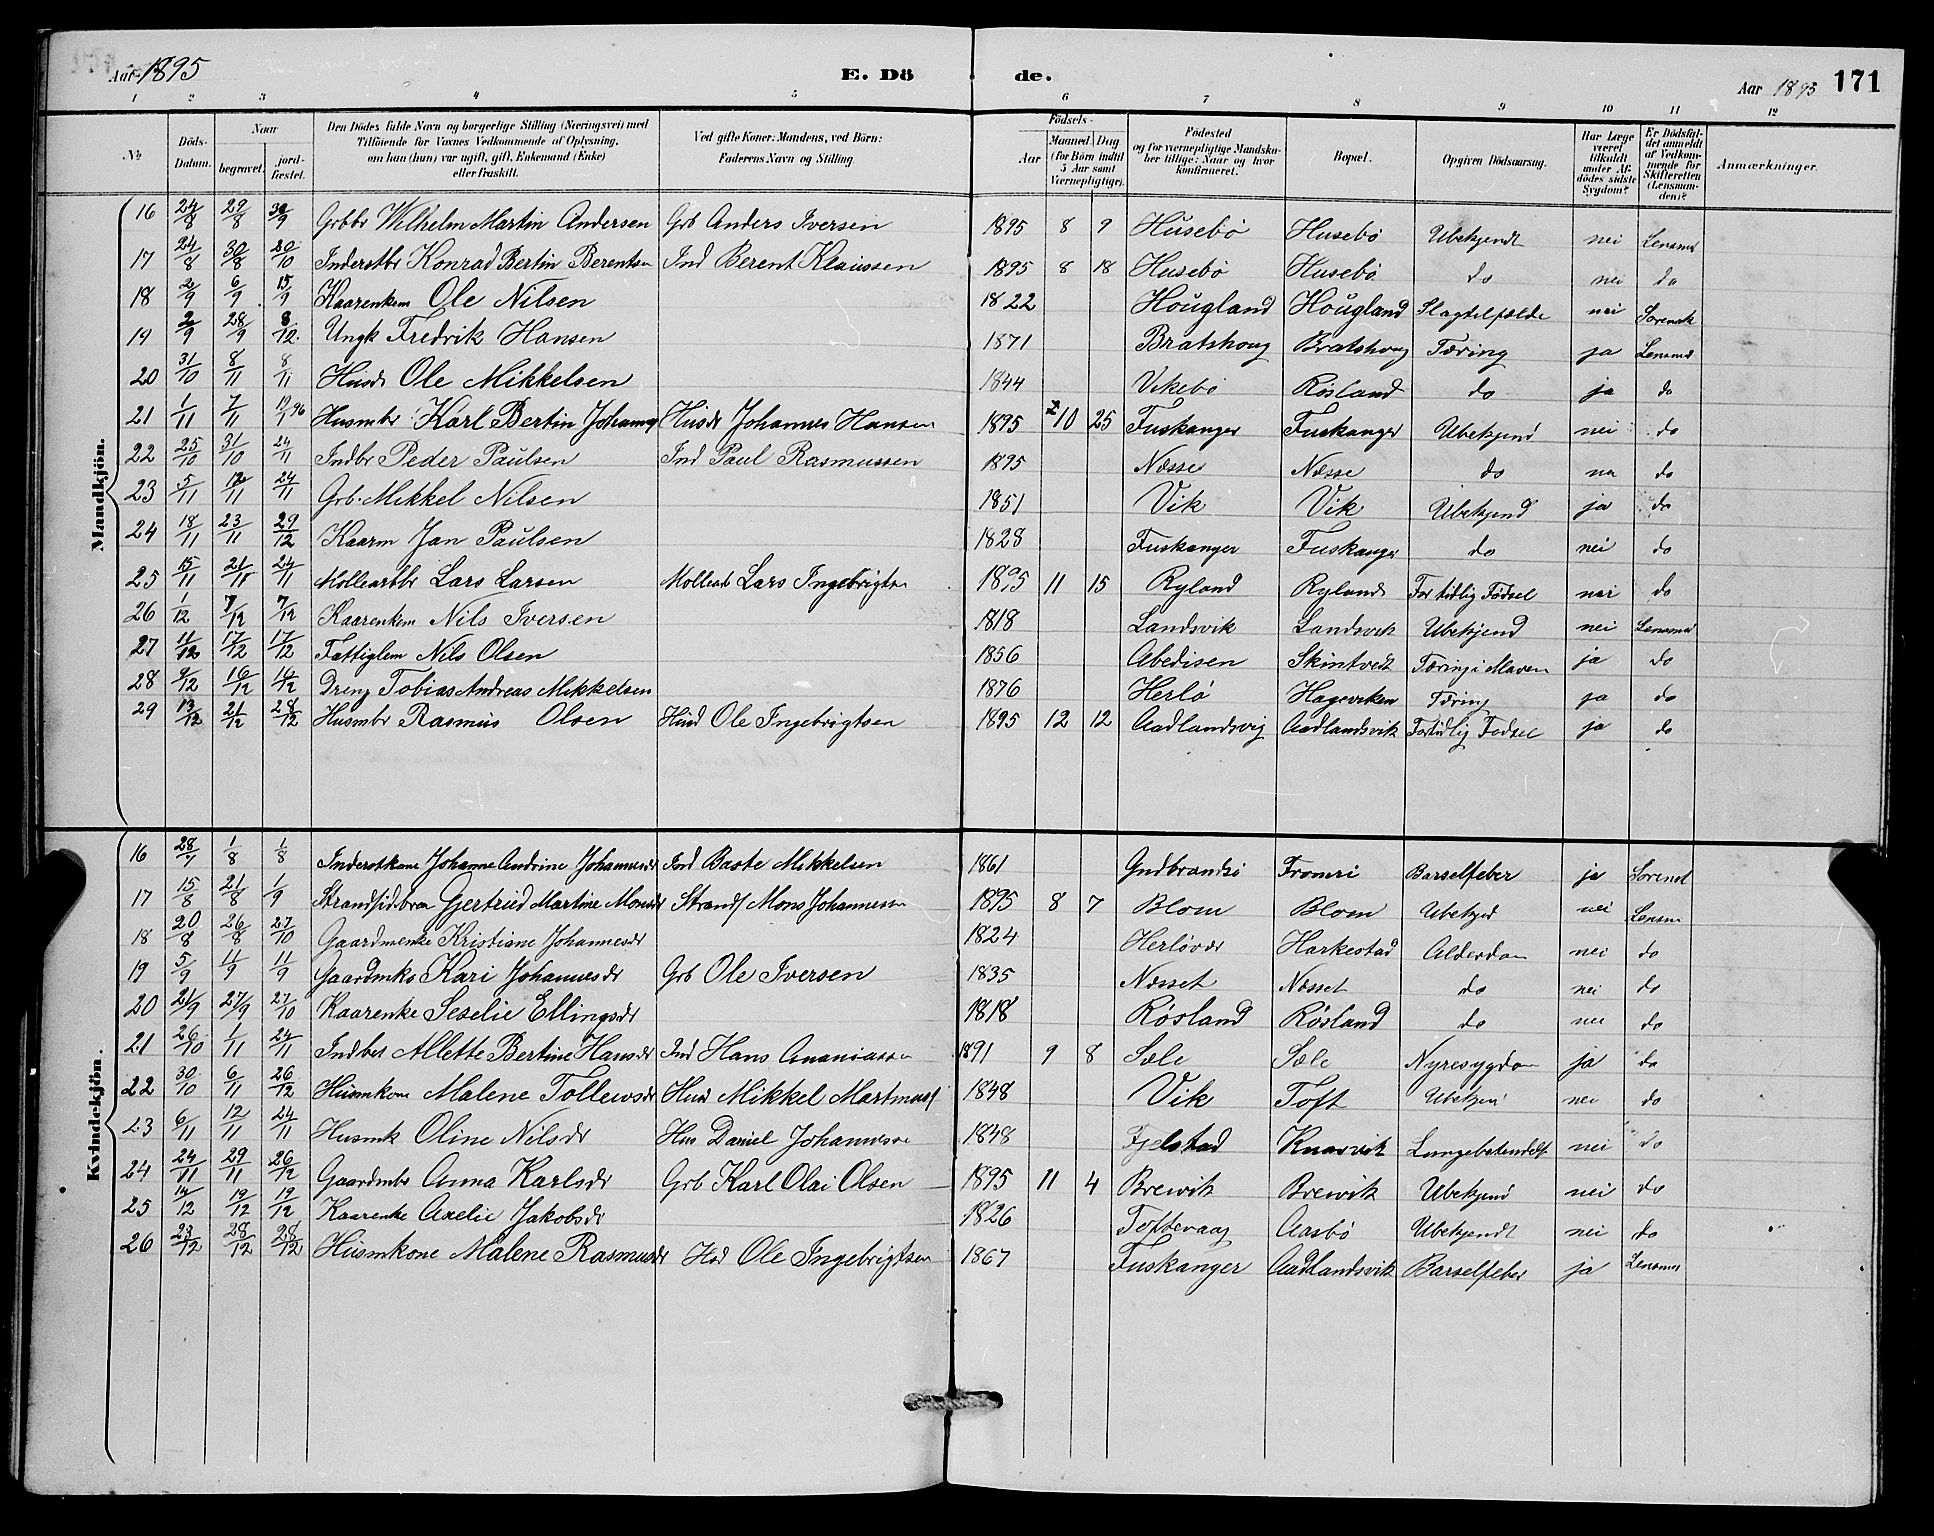 Aar 1895 E. Dö de. Aar 1895 171
1 2 3 4 5 6 7 8 9 10 11 12
№ Döds-Datum. Naar begravet. jordfæstet. Den Dödes fulde Navn og borgerlige Stilling (Næringsvei) med Tilföiende for Voxnes Vedkommende af Oplysning, om han (hun) var ugift, gift, Enkemand (Enke) eller fraskilt. Ved gifte Koner: Mandens, ved Börn: Faderens Navn og Stilling. Födsels- Aar Maaned Dag (for Börn indtil 5 Aar samt Værnepligtige). Födested og for værnepligtige Mandskaber tillige: Naar og hvor konfirmeret. Bopæl. Opgiven Dödsaarsag. Har Læge været tilkaldt under Afdödes sidste Sygdom? Er Dödsfaldet anmeldt af Vedkommende for Skifteretten (Lensmanden)? Anmærkninger.
Mandkjön.
16 24/8 29/8 30/9 Grbbr Wilhelm Martin Andersen Grb Anders Iversen 1895 8 9 Husebö Husebö Ubekjendt nei Lensmd
17 24/8 30/8 20/10 Inderstbr Konrad Bertin Berentsen Ind Berent Klaussen 1895 8 18 Husebö Husebö do nei do
18 2/9 6/9 15/9 Kaarenkem Ole Nilsen 1822 Hougland Hougland Slagtilfælde nei Sorensk
19 2/9 28/9 8/10 Ungk Fredrik Hansen 1871 Bratshoug Bratshoug Tæring ja Lensmd
20 31/10 8/11 8/11 Husd Ole Mikkelsen 1844 Vikebö Rösland do ja do
21 1/11 7/11 19/1 96 Husmbr Karl Bertin Johannes Husd Johannes Hansen 1895 10 25 Fuskanger Fuskanger Ubekjend nei do
22 25/10 31/10 24/11 Indbr Peder Paulsen Ind Paul Rasmussen 1895 Næsse Næsse do nei do
23 5/11 12/11 24/11 Grb. Mikkel Nilsen 1851 Vik Vik Ubekjend ja do
24 18/11 23/11 29/12 Kaarm Jan Paulsen 1828 Fuskanger Fuskanger do nei do
25 15/11 21/11 24/11 Mollearbbr Lars Larsen Mollearb Lars Ingebrigtsn 1895 11 15 Ryland Ryland For tidlig Födsel nei do
26 1/12 7/12 7/12 Kaarenkem Nils Iversen 1818 Landsvik Landsvik Ubekjend nei Lensmd
27 11/12 17/12 17/12 Fattiglem Nils Olsen 1856 Abedisen Skintvedt Tæring i Maven ja do
28 9/12 16/12 16/12 Dreng Tobias Andreas Mikkelsen 1876 Herlö Hageviken Tæring ja do
29 13/12 21/12 28/12 Husmbr Rasmus Olsen Husd Ole Ingebrigtsen 1895 12 12 Aadlandsvig Aadlandsvik Fortidlig Fodsel ja do
Kvindekjön.
16 28/7 1/8 1/8 Inderstkone Johanne Andrine Johannesdr Ind Baste Mikkelsen 1861 Gudbrandsö Fromri Barselfeber ja Sorensk
17 15/8 21/8 1/9 Strandsidebrn Gjertrud Martine Monsdr Strands Mons Johannessn 1895 8 7 Blom Blom Ubekjed nei Lensm
18 20/8 26/8 27/10 Gaardmenke Kristiane Johannesdr 1824 Herlövær Harkestad Alderdom nei do
19 5/9 11/9 11/9 Gaardmko Kari Johannesdr Grb Ole Iversen 1835 Næsset Næsset do nei do
20 21/9 27/9 27/10 Kaarenke Seselie Ellingsdr 1818 Rösland Rösland do nei do
21 26/10 1/11 24/11 Indbr Allette Bertine Hansdr Ind Hans Ananiassn 1891 9 8 Sæle Sæle Nyresygdom ja do
22 30/10 6/11 26/12 Husmkone Malene Tollewsdr Husd Mikkel Martinus 1848 Vik Toft Ubekjend nei do
23 6/11 12/11 24/11 Husmk Oline Nilsdr Hus Daniel Johannessn 1848 Fjelstad Knarvik Lungebetendels nei do
24 24/11 29/11 26/12 Gaardmbr Anna Karlsdr Grb Karl Olai Olsen 1895 11 4 Brewik Brewik Ubekjend nei do
25 14/12 19/12 19/12 Kaarenke Axelie Jakobsdr 1826 Toftevaag Aasbö Ubekjendt nei do
26 23/12 28/12 28/12 Husmkone Malene Rasmusdr Hsd Ole Ingebrigtsen 1867 Fuskanger Aadlandsvik Barselfeber ja Lensmd